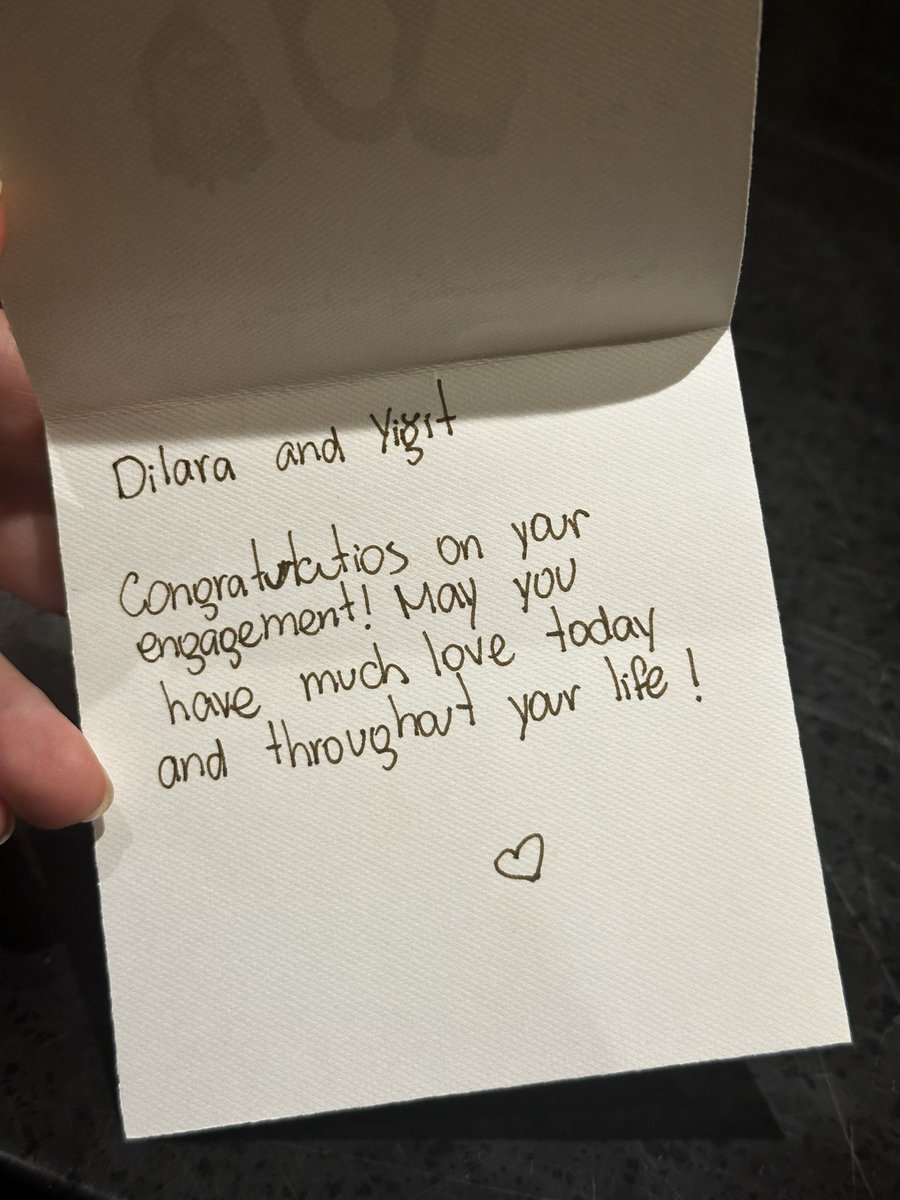 Dilara and Yiğit
Congratulatios on your
engagement! May you
have much love today
and throughout your life!